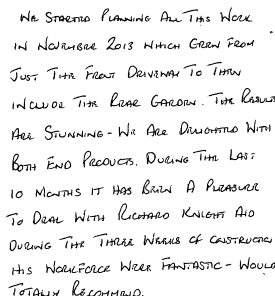 We Started Planning All This Work
in November 2013 Which Grew From
Just The Front Driveway To Then
Include The Rear Garden. The Results
Are Stunning - We Are Delighted With
Both End Products. During The Last
10 Months It Has Been A Pleasure
To Deal With Richard Knight And
During The Three Weeks of Construction
His Workforce Were Fantastic - Would
Totally Recommend.